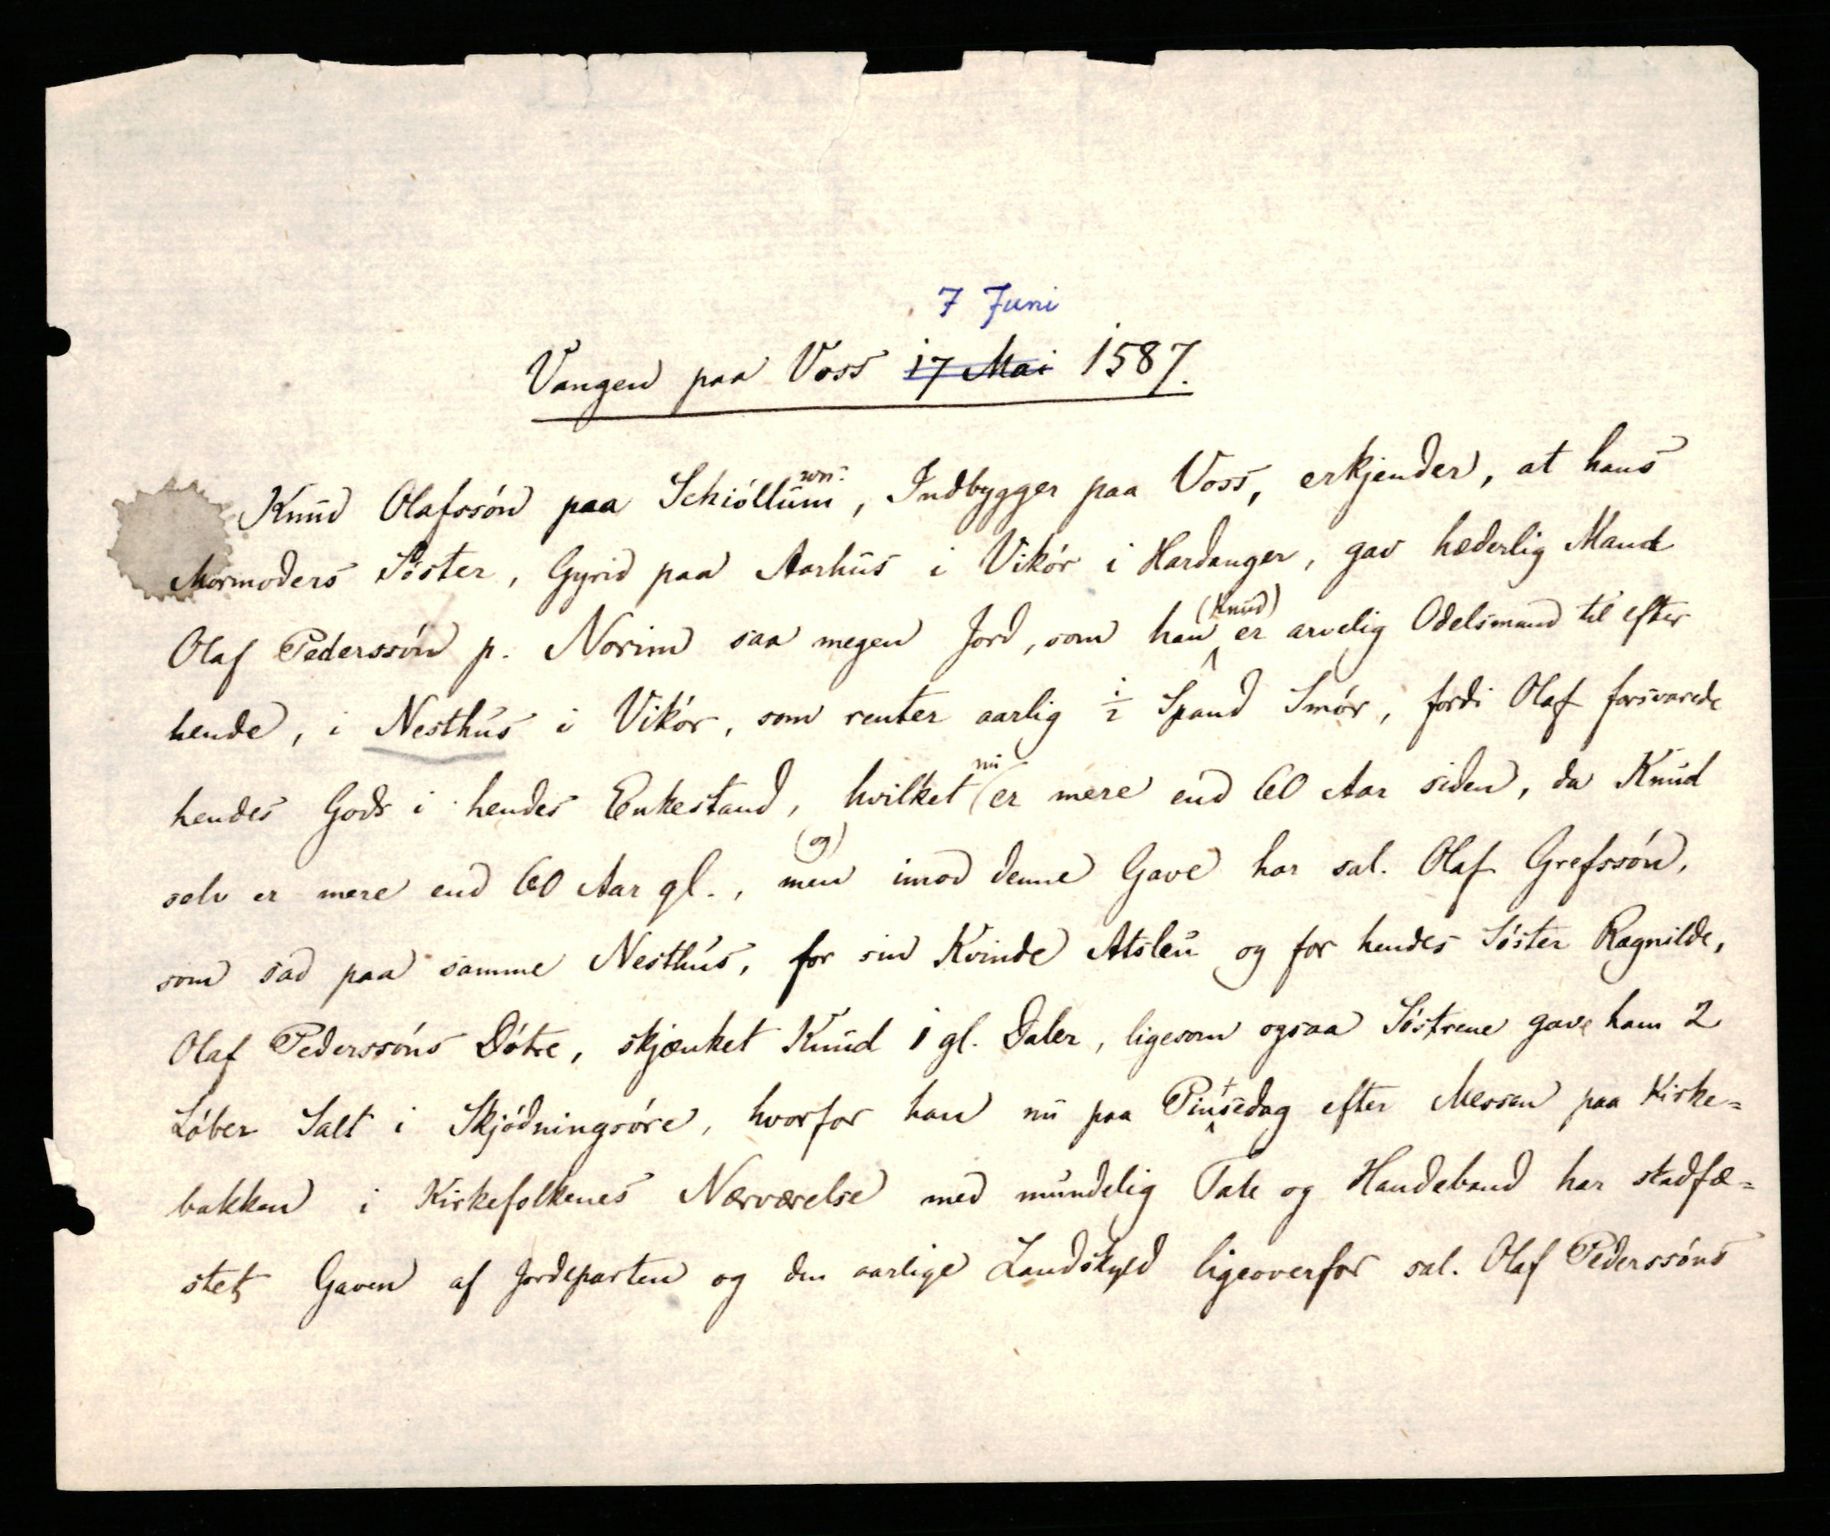 7 Juni
Vangen paa Voss 17 Mai 1587.
Knud Olafssön paa Schiöllum, Indbygger paa Voss, erkjender, at hans
Mormoders Söster, Gyrid paa Aarhus i Vikör i Hardanger, gav hæderlig Mand
(Knud)
Olaf Pederssön p. Norim saa megen Jord, som han er arvelig Odelsmand til efter
hende, i Nesthus i Vikör, som renter aarlig ½ Spand Smör, fordi Olaf forsvarede
nu
hendes Gods i hendes Enkestand, hvilket er mere end 60 Aar siden, da Knud
(og)
selv er mere end 60 Aar gl., men imod denne Gave har sal. Olaf Grefssön,
som sad paa samme Nesthus, for sin Kvinde Atsleu og for hendes Söster Ragnilde,
Olaf Pederssöns Dötre, skjænket Knud 1 gl. Daler, ligesom ogsaa Söstrene gave ham 2
Löber Salt i Skjödningsöre, hvorfor han nu paa Pintsedag efter Messen paa Kirke=
bakken i Kirkefolkenes Nærværelse med mundelig Tale og Haandebaand har stadfæ=
stet Gaven af Jordeparten og den aarlige Landskyld ligeoverfor sal. Olaf Pederssöns